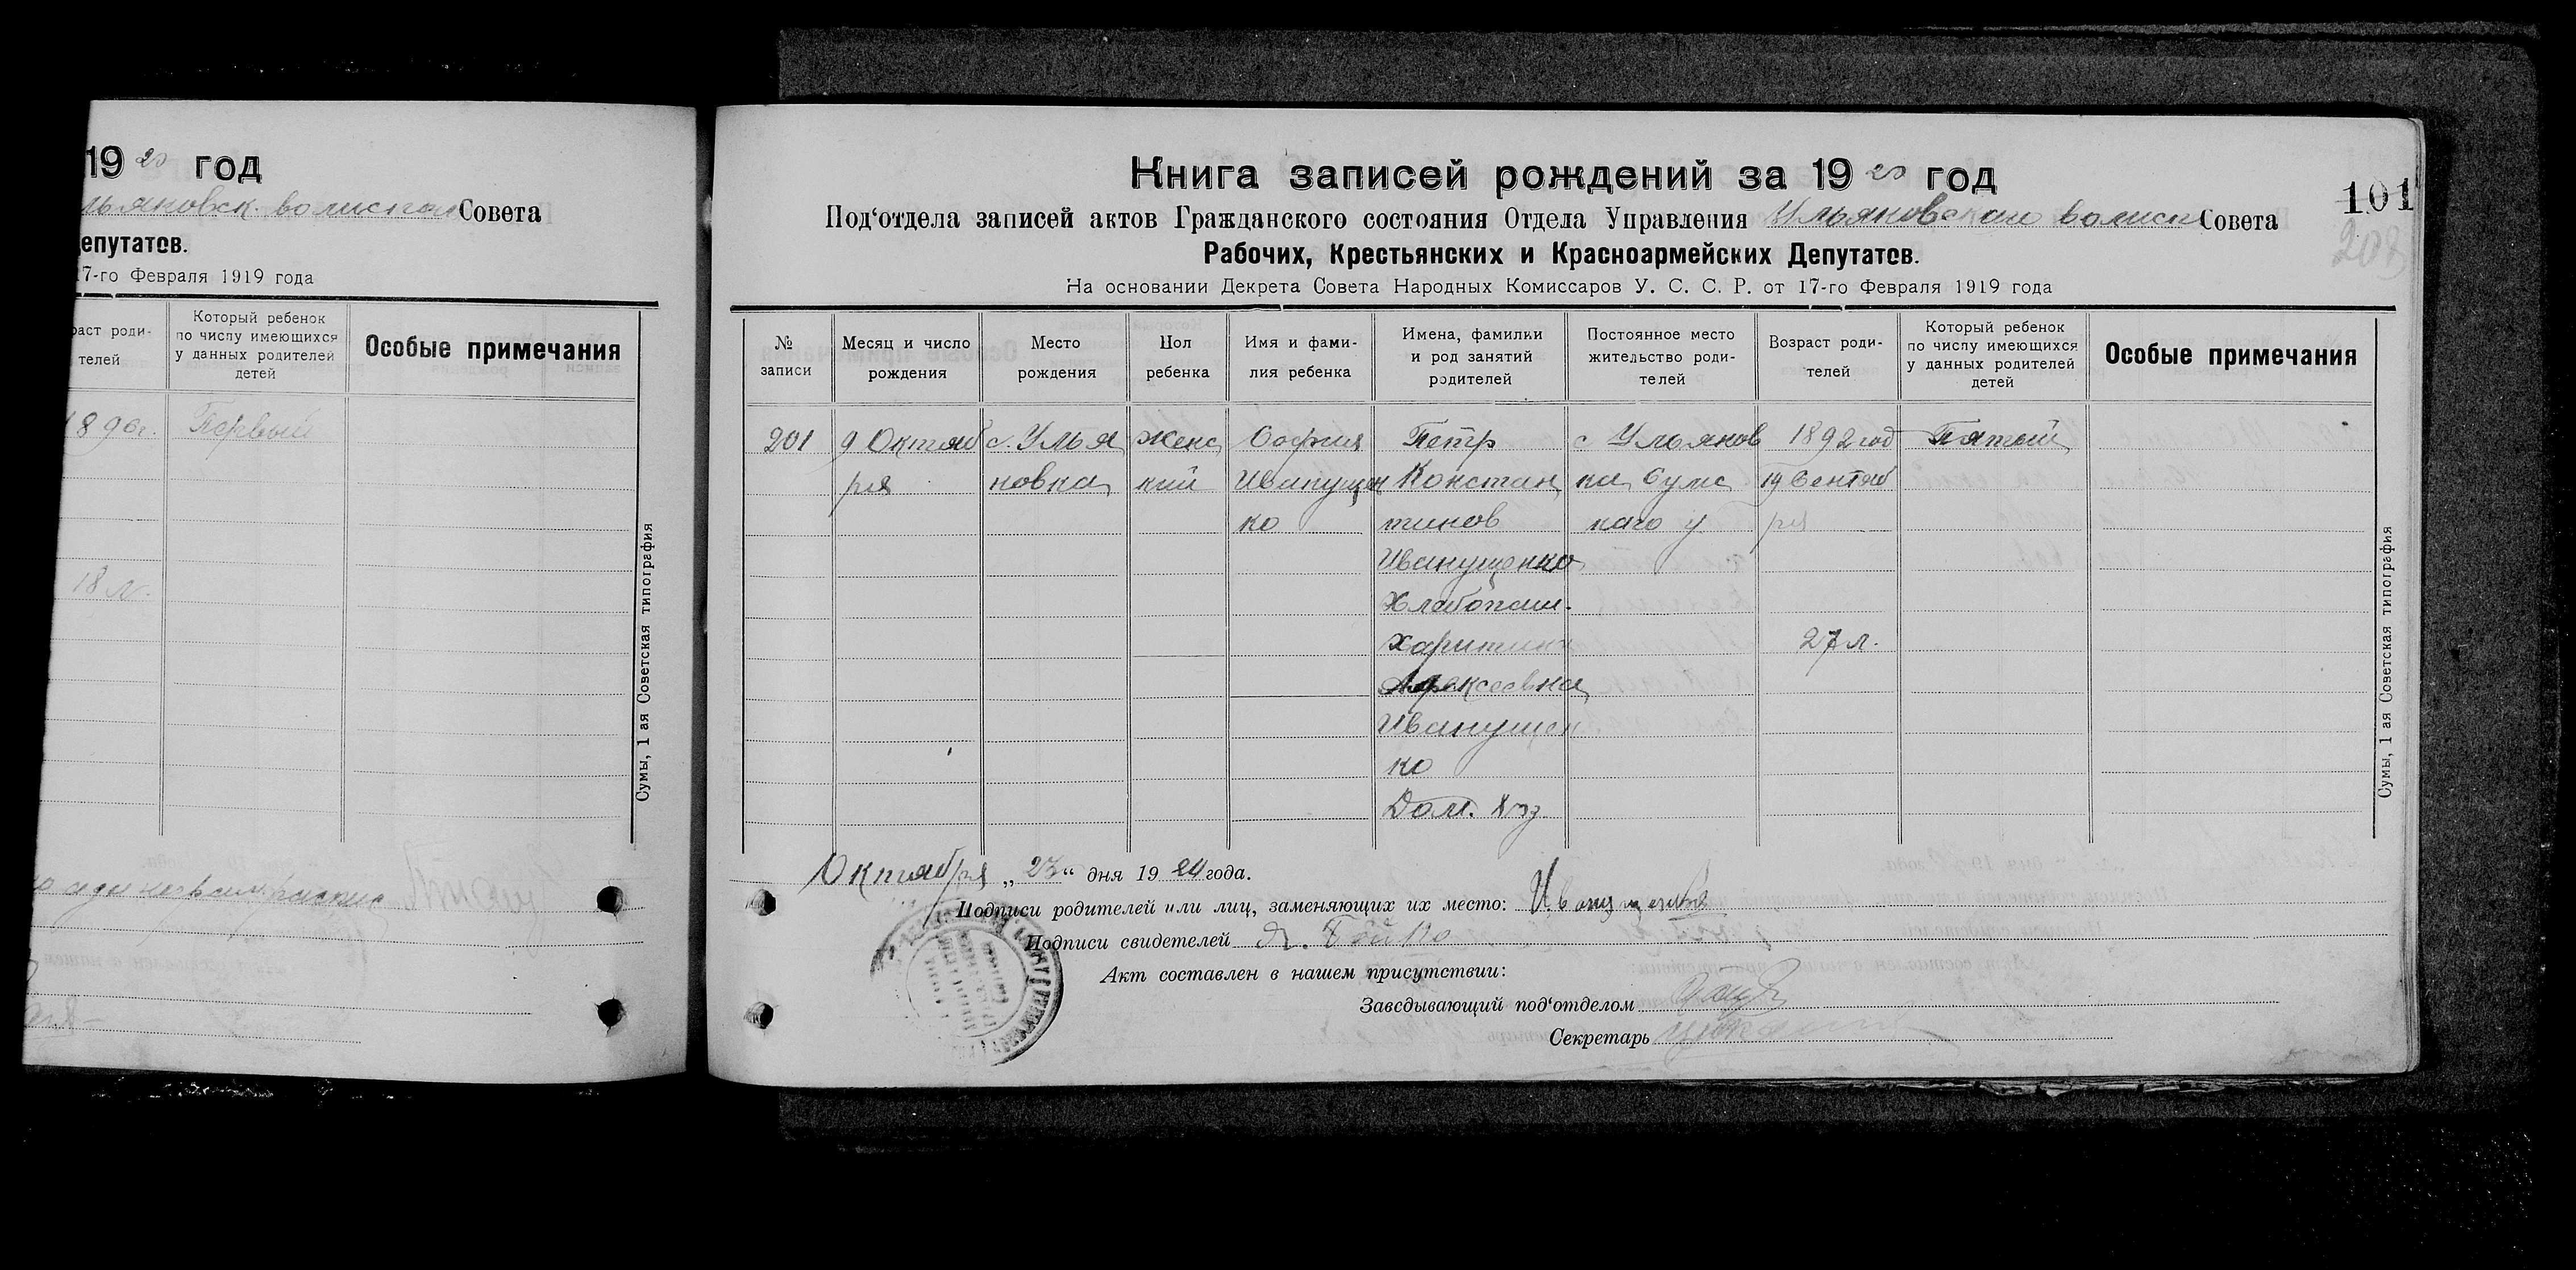 19 20 год
льяновск. волиспол Совета
депутатов.
17-го Февраля 1919 года
раст роди-
телей
Который ребенок
по числу имеющихся
у данных родителей
детей
Особые примечания
1890г.
Первый
18 л.
Сумы, 1 ая Советская типография
Книга записей рождений за 19 20 год
101
208
Под‘отдела записей актов Гражданского состояния Отдела Управления Ульяновскаго волисп Совета
Рабочих, Крестьянских и Красноармейских Депутатов.
На основании Декрета Совета Народных Комиссаров У. С. С. Р. от 17-го Февраля 1919 года
№
записи
Месяц и число
рождения
Место
рождения
Пол
ребенка
Имя и фами-
лия ребенка
Имена, фамилии
и род занятий
родителей
Постоянное место
жительство роди-
телей
Возраст роди-
телей
Который ребенок
по числу имеющихся
у данных родителей
детей
Особые примечания
201 9 Октяб с. Улья Женс София Петр с Ульянов 1892 год Пятый
ря новка кий Иванущен Констан ка Сумс 19 Сентяб
ко тинов каго у ря
Иванущенко
Хлебопаш.
Харитина 27 л.
Алексеевна
Иванущен
ко
Дом. Хоз
Сумы, 1 ая Советская типография
Октября „23“ дня 19 20 года.
Подписи родителей или лиц, заменяющих их место: Иванущенко
Подписи свидетелей Бойко
Акт составлен в нашем присутствии:
Заведывающий под‘отделом
Секретарь